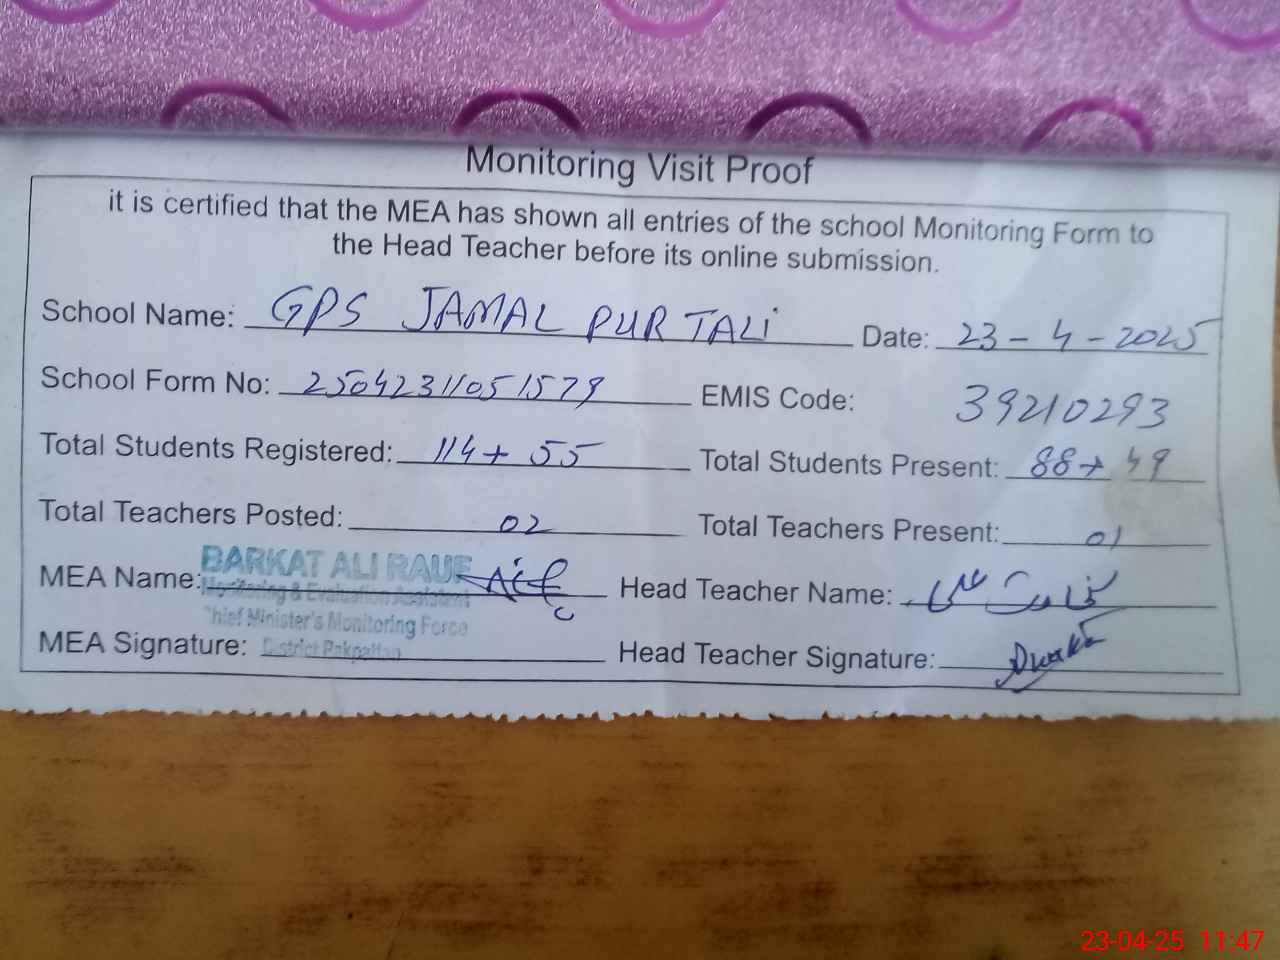 Monitoring Visit Proof
it is certified that the MEA has shown all entries of the school Monitoring Form to
the Head Teacher before its online submission.
School Name: GPS JAMAL PUR TALi Date: 23-4-2025
School Form No: 25042311051579 EMIS Code: 39210293
Total Students Registered: 114+55 Total Students Present: 88+49
Total Teachers Posted: 02 Total Teachers Present: 01
MEA Name: BARKAT ALI RAUF Head Teacher Name:
Monitoring & Evaluation Assistant
Chief Minister's Monitoring Force
MEA Signature: District Pakpattan Head Teacher Signature:
23-04-25 11:47